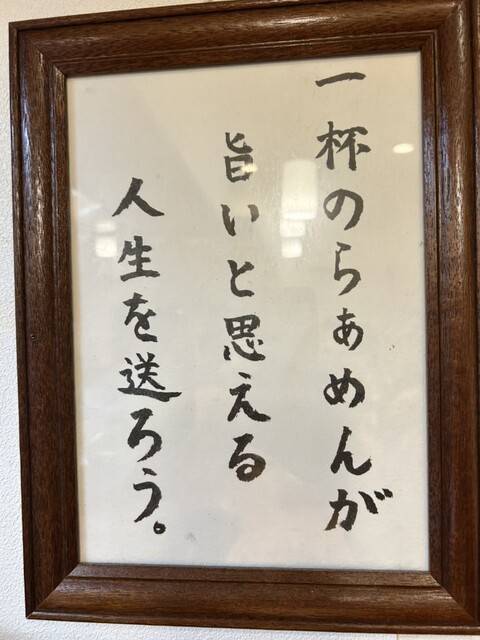 一杯のらぁめんが
旨いと思える
人生を送ろう。